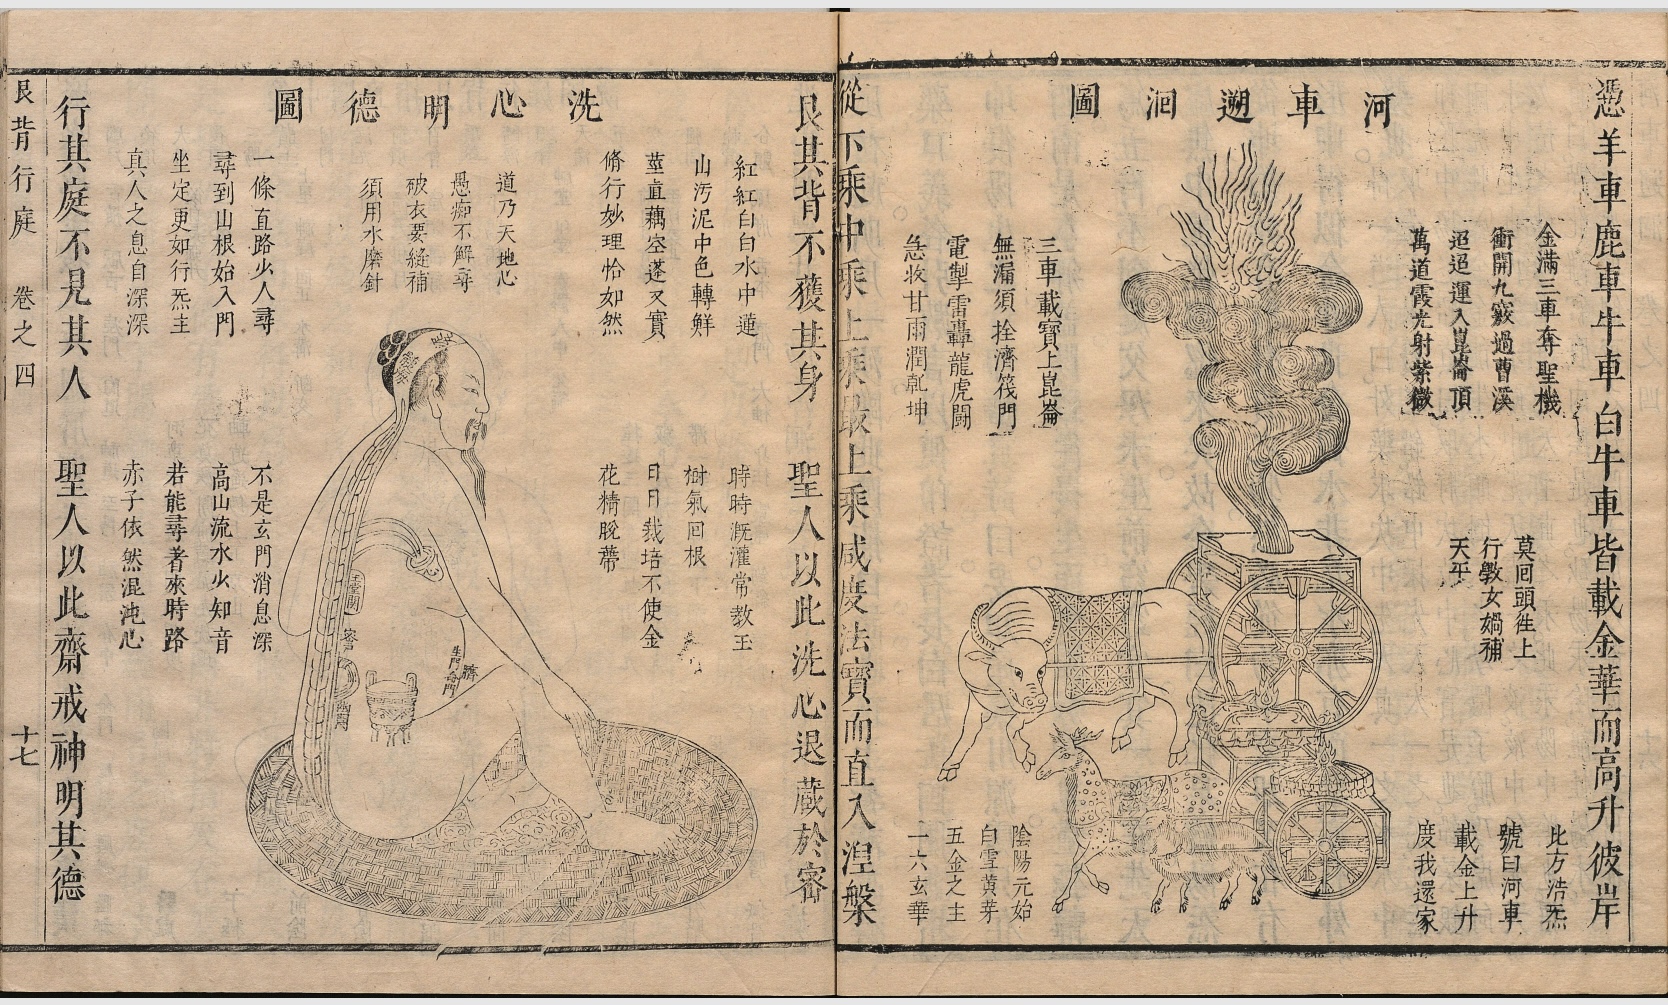 河車遡洄圖
憑羊車鹿車牛車白牛車皆載金華而高升彼岸
金滿三車奪聖機
衝開九竅過曹溪
迢迢運入崑崙頂
萬道霞光射紫微
三車載寶上崑崙
無漏須拴濟筏門
電掣雷轟龍虎鬪
急收甘雨潤乾坤
莫囘頭徃上
行斆女媧補
天𠀚
比方浩炁
號曰河車
載金上升
度我還家
陰陽元始
白雪黃芽
五金之主
一六玄華
從下乘中乘上乘最上乘咸度法寶而直入湼槃
洗心明德圖
艮其背不獲其身 聖人以此洗心退藏於宻
紅紅白白水中蓮
山污泥中色轉鮮
莖直藕空蓬又實
脩行妙理恰如然
道乃天地心
愚痴不解尋
破衣要縫補
須用水磨針
一條直路少人尋
尋到山根始入門
坐定更如行炁主
真人之息自深深
時時溉灌常教玉
樹氣囘根
日日栽培不使金
花精脫蔕
不是玄門消息深
高山流水火知音
若能尋著來時路
赤子依然混沌心
玉堂關
宻
臍
生門
命門
行其庭不見其人 聖人以此齋戒神明其德
艮背行庭 卷之四 十七